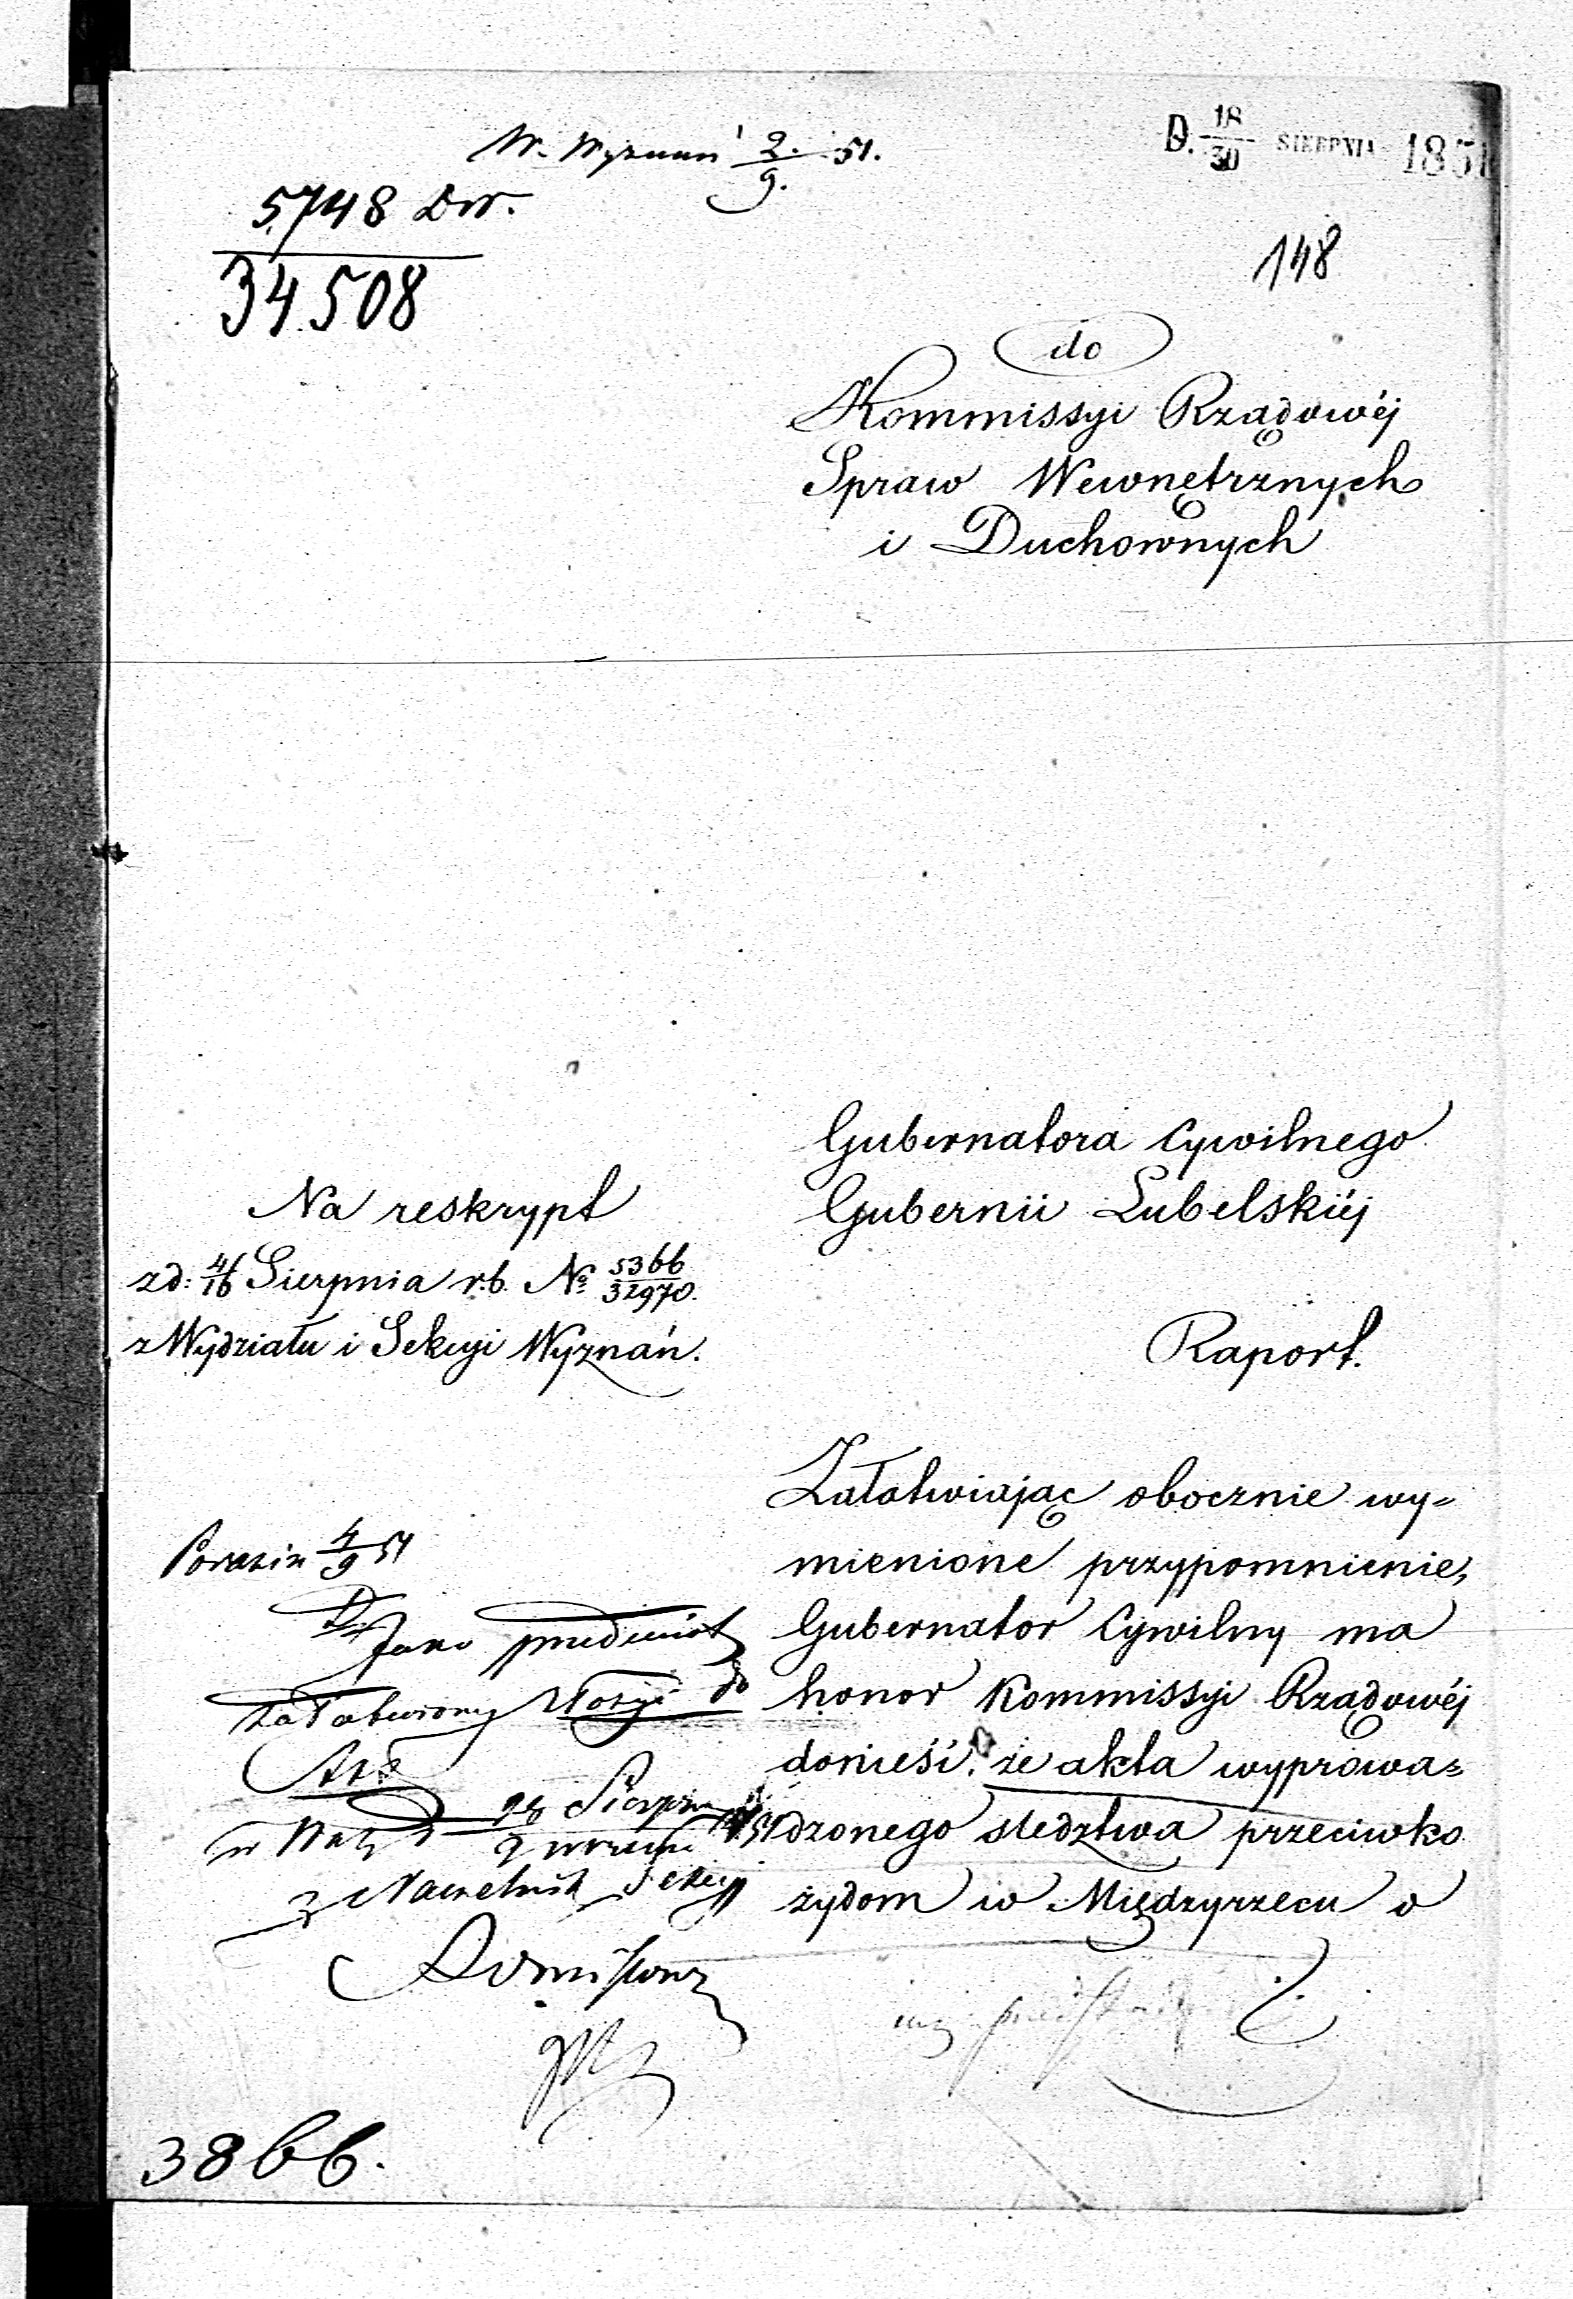 W. Wyznań 2/9. 51.
D. 18/30 SIERPNIA 1851
5748 Dw.
34508
148
do
Kommissyi Rządowéj
Spraw Wewnętrznych
i Duchownych
Gubernatora Cywilnego
Gubernii Lubelskiéj
Na reskrypt
z d: 4/16 Sierpnia r.b. No 5366/32970.
z Wydziału i Sekcyi Wyznań.
Raport.
Załatwiając obocznie wy=
mienione przypomnienie,
Gubernator Cywilny ma
honor Kommissyi Rządowéj
donieść, że akta wyprowa=
dzonego śledztwa przeciwko
żydom w Międzyrzecu o
4/9 51
Jako przedmiot
załatwiony złożyć do
Akt
Sierpnia
Naczelnik Sekcyi
3866.